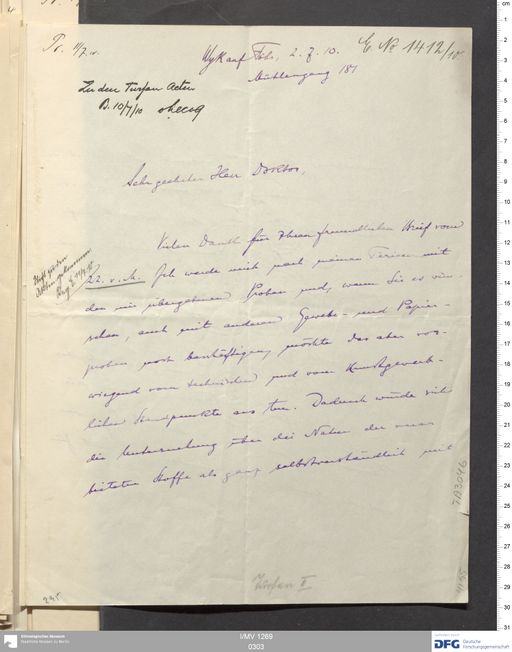 Pr. 11/7. 10.
E. No 1412/10
Wyk auf Föhr, 2. 7. 10.
Mühlengang 181
Zu den Turfan Acten
B. 10/7/10
Sehr geehrter Herr Doktor,
Vielen Dank für Ihren freundlichen Brief vom
22. v. M. Ich werde mich nach meinen Ferien mit
den mir übergebenen Proben und, wenn Sie es wün-
schen, auch mit anderen Gewebe- und Papier-
proben noch beschäftigen, möchte das aber vor-
wiegend vom technischen und vom Kunstgewerb-
lichen Standpunkte aus tun. Dadurch würde sich
die Untersuchung über die Natur der verar-
beiteten Stoffe als ganz selbstverständlich mit
TA3046
Turfan II
235
Ethnologisches Museum
Staatliche Museen zu Berlin
I/MV 1269
0303
gefördert durch
DFG
Deutsche
Forschungsgemeinschaft